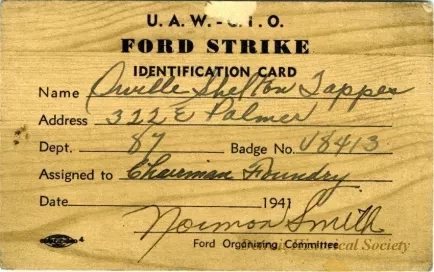 U. A. W. - C. I. O.
FORD STRIKE
IDENTIFICATION CARD
Name Orville Shelton Tapper
Address 322 E Palmer
Dept. 87 Badge No. U8413
Assigned to Chairman Foundry
Date 1941
Norman Smith
Ford Organizing Committee
Historical Society